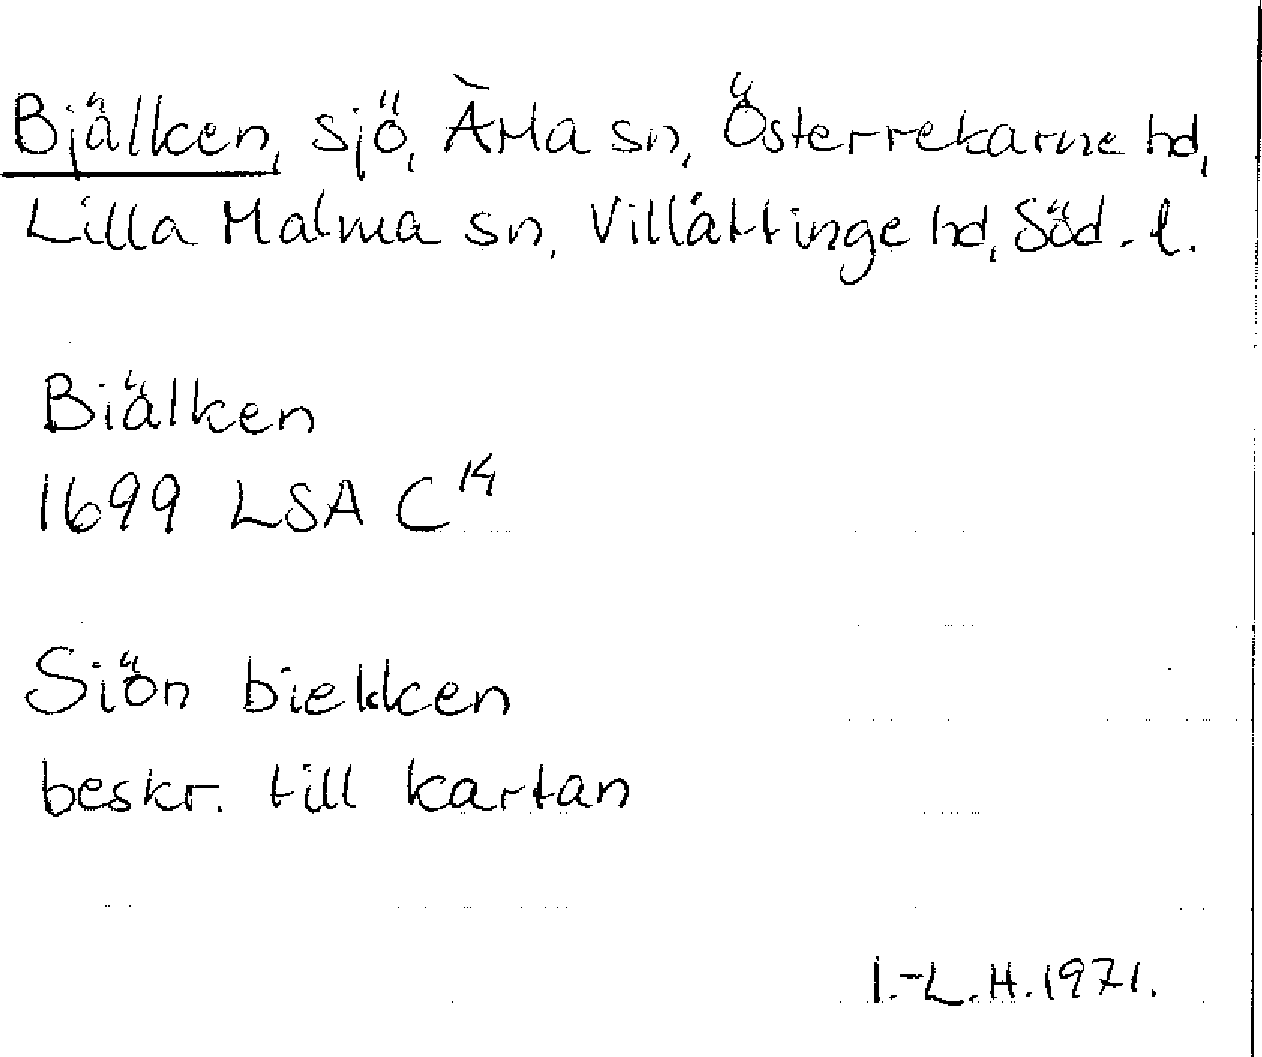 Bjälken, sjö, Ärla sn, Österrekarne hd,
Lilla Malma sn, Villåttinge hd, Söd. l.
Biälken
1699 LSA C 14
Siön biekken
beskr. till kartan
I.-L.H. 1971.